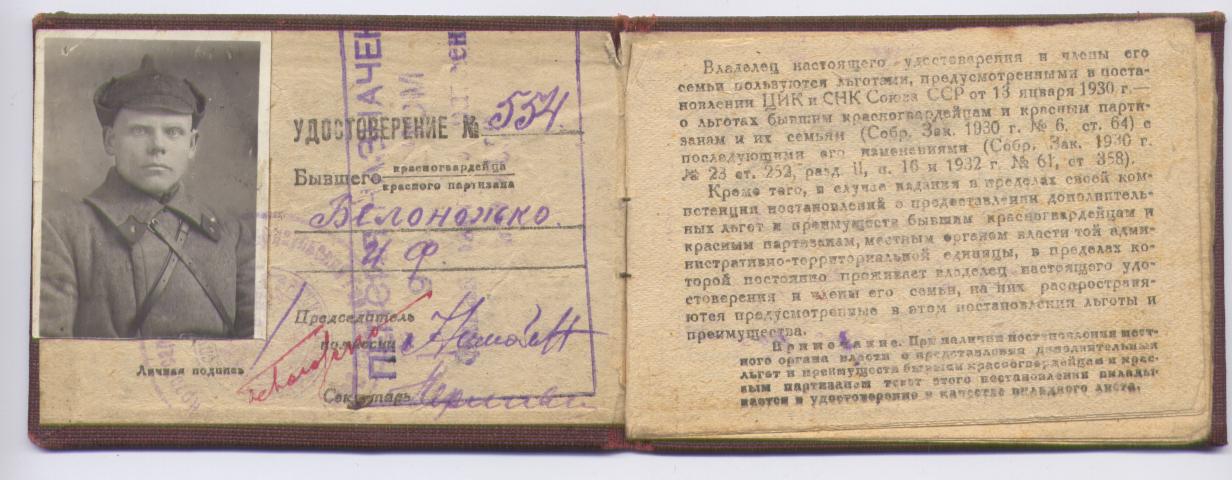 УДОСТОВЕРЕНИЕ № 554
Бывшего красногвардейца
красного партизана
Белоножко
И. Ф.
Председатель
комиссии
Личная подпись
Секретарь
Владелец настоящего удостоверения и члены его
семьи пользуются льготами, предусмотренными в поста-
новлении ЦИК и СНК Союза ССР от 13 января 1930 г.—
о льготах бывшим красногвардейцам и красным парти-
занам и их семьям (Собр. Зак. 1930 г. № 6, ст. 64) с
последующими его изменениями (Собр. Зак. 1930 г.
№ 23 ст. 252, разд. II, п. 16 и 1932 г. № 61, ст 358).
Кроме того, в случае издания в пределах своей ком-
петенции постановлений о предоставлении дополнитель-
ных льгот и преимуществ бывшим красногвардейцам и
красным партизанам, местным органом власти той адми-
нистративно-территориальной единицы, в пределах ко-
торой постоянно проживает владелец настоящего удо-
стоверения и члены его семьи, на них распространя-
ются предусмотренные в этом постановлении льготы и
преимущества.
Примечание. При наличии постановления мест-
ного органа власти о предоставлении дополнительных
льгот и преимуществ бывшим красногвардейцам и крас-
ным партизанам текст этого постановления вклады-
вается в удостоверение в качестве вкладного листа.